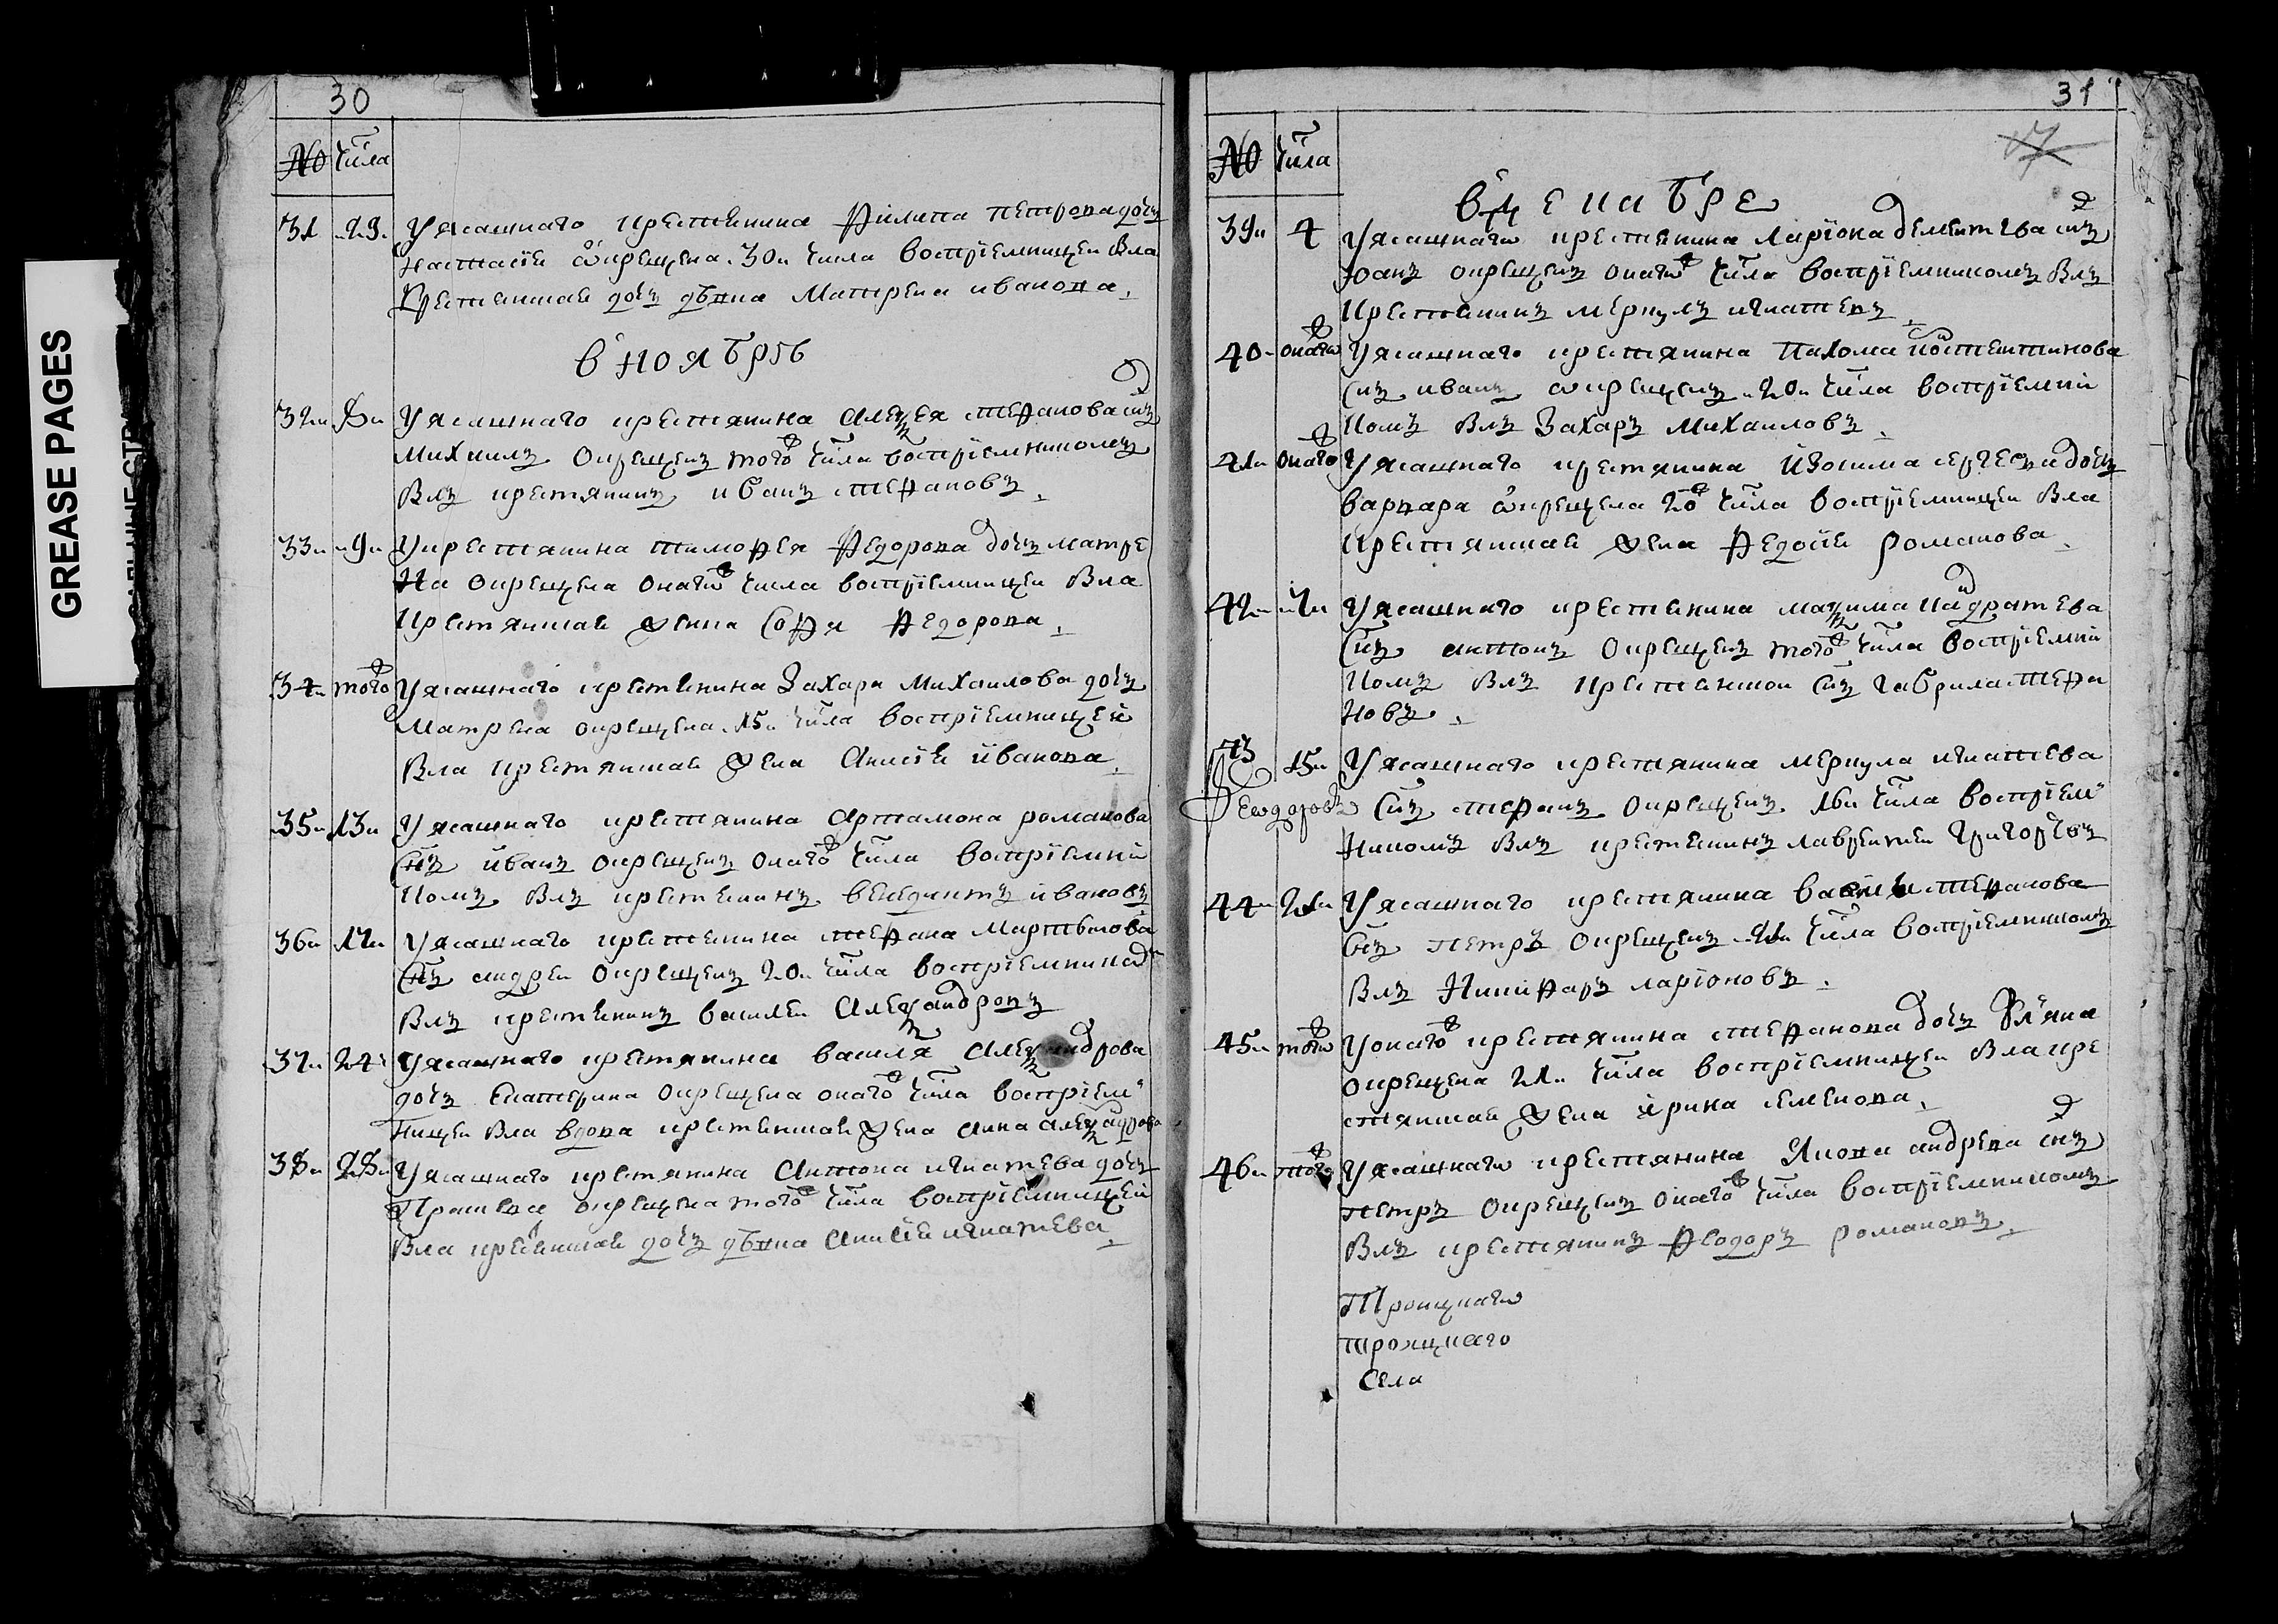 GREASE PAGES
30
№ Числа
31 29 У ясашнаго крестьянина Филипа петрова дочь
настасия окрещена 30 числа восприемницей была
Крестьянская дочь девка Матрена иванова
в ноябре
32 8 У ясашнаго крестьянина алексея степанова сынъ
Михаилъ Окрещенъ того числа восприемникомъ
Былъ крестьянинъ иванъ степановъ
33 9 У крестьянина тимофея Федорова дочь матре
на Окрещена онаго числа восприемницей Была
Крестьянская жена Софья Федорова
34 того У ясашнаго крестьянина Захара Михаилова дочь
Матрена окрещена 15 числа восприемницей
Была Крестьянская жена Анисия иванова
35 13 У ясашнаго крестьянина Артамона романова
Сынъ иванъ окрещенъ онаго числа восприемни
комъ Былъ крестьянинъ венедиктъ ивановъ
36 17 У ясашнаго крестьянина степана
Сынъ андреи Окрещенъ 20 числа восприемником
Былъ крестьянинъ василеи Александровъ
37 24 У ясашнаго крестьянина василя Александрова
дочь Екатерина Окрещена онаго числа восприем
ницеи Была вдова крестьянская жена анна александрова
38 28 У ясашнаго крестьянина Антона игнатьева дочь
Прасковя окрещена того числа восприемницеи
Была крестьянская дочь девка Анисия игнатьева
31
17
№ Числа
в декабре
39 4 У ясашнаго крестьянина лариона дементева сынъ
Иоанъ окрещенъ онаго числа восприемникомъ Былъ
Крестьянинъ меркулъ игнатевъ
40 онаго У ясашнаго крестьянина Пахома костентинова
Сынъ иванъ окрещенъ 20 числа восприемни
комъ Былъ Захаръ Михаиловъ
41 Онаго У ясашнаго крестьянина Изосима сергеева дочь
варвара окрещена 20 числа восприемницеи Была
Крестьянская жена Федосия романова
42 7 У ясашнаго крестьянина максима кадратева
Сынъ антонъ Окрещенъ того числа восприемни
комъ Былъ Крестьянскои Сынъ гаврила степа
новъ
43 15 У ясашнаго крестьянина меркула игнатева
Феодоровъ Сынъ степанъ Окрещенъ 16 числа восприем
никомъ Былъ крестьянинъ лаврентеи Григорьевъ
44 21 У ясашнаго крестьянина степанова
Сынъ петръ Окрещенъ 21 числа восприемникомъ
Былъ Никифаръ ларионовъ
45 того У онаго крестьянина степанова дочь
окрещена 21 числа восприемницеи Была кре
стьянская жена ирина семенова
46 того У ясашнаго крестьянина Якова андрева сынъ
петръ Окрещенъ онаго числа восприемникомъ
Былъ крестьянинъ Феодоръ романовъ
Троицкаго
троицкаго
Села